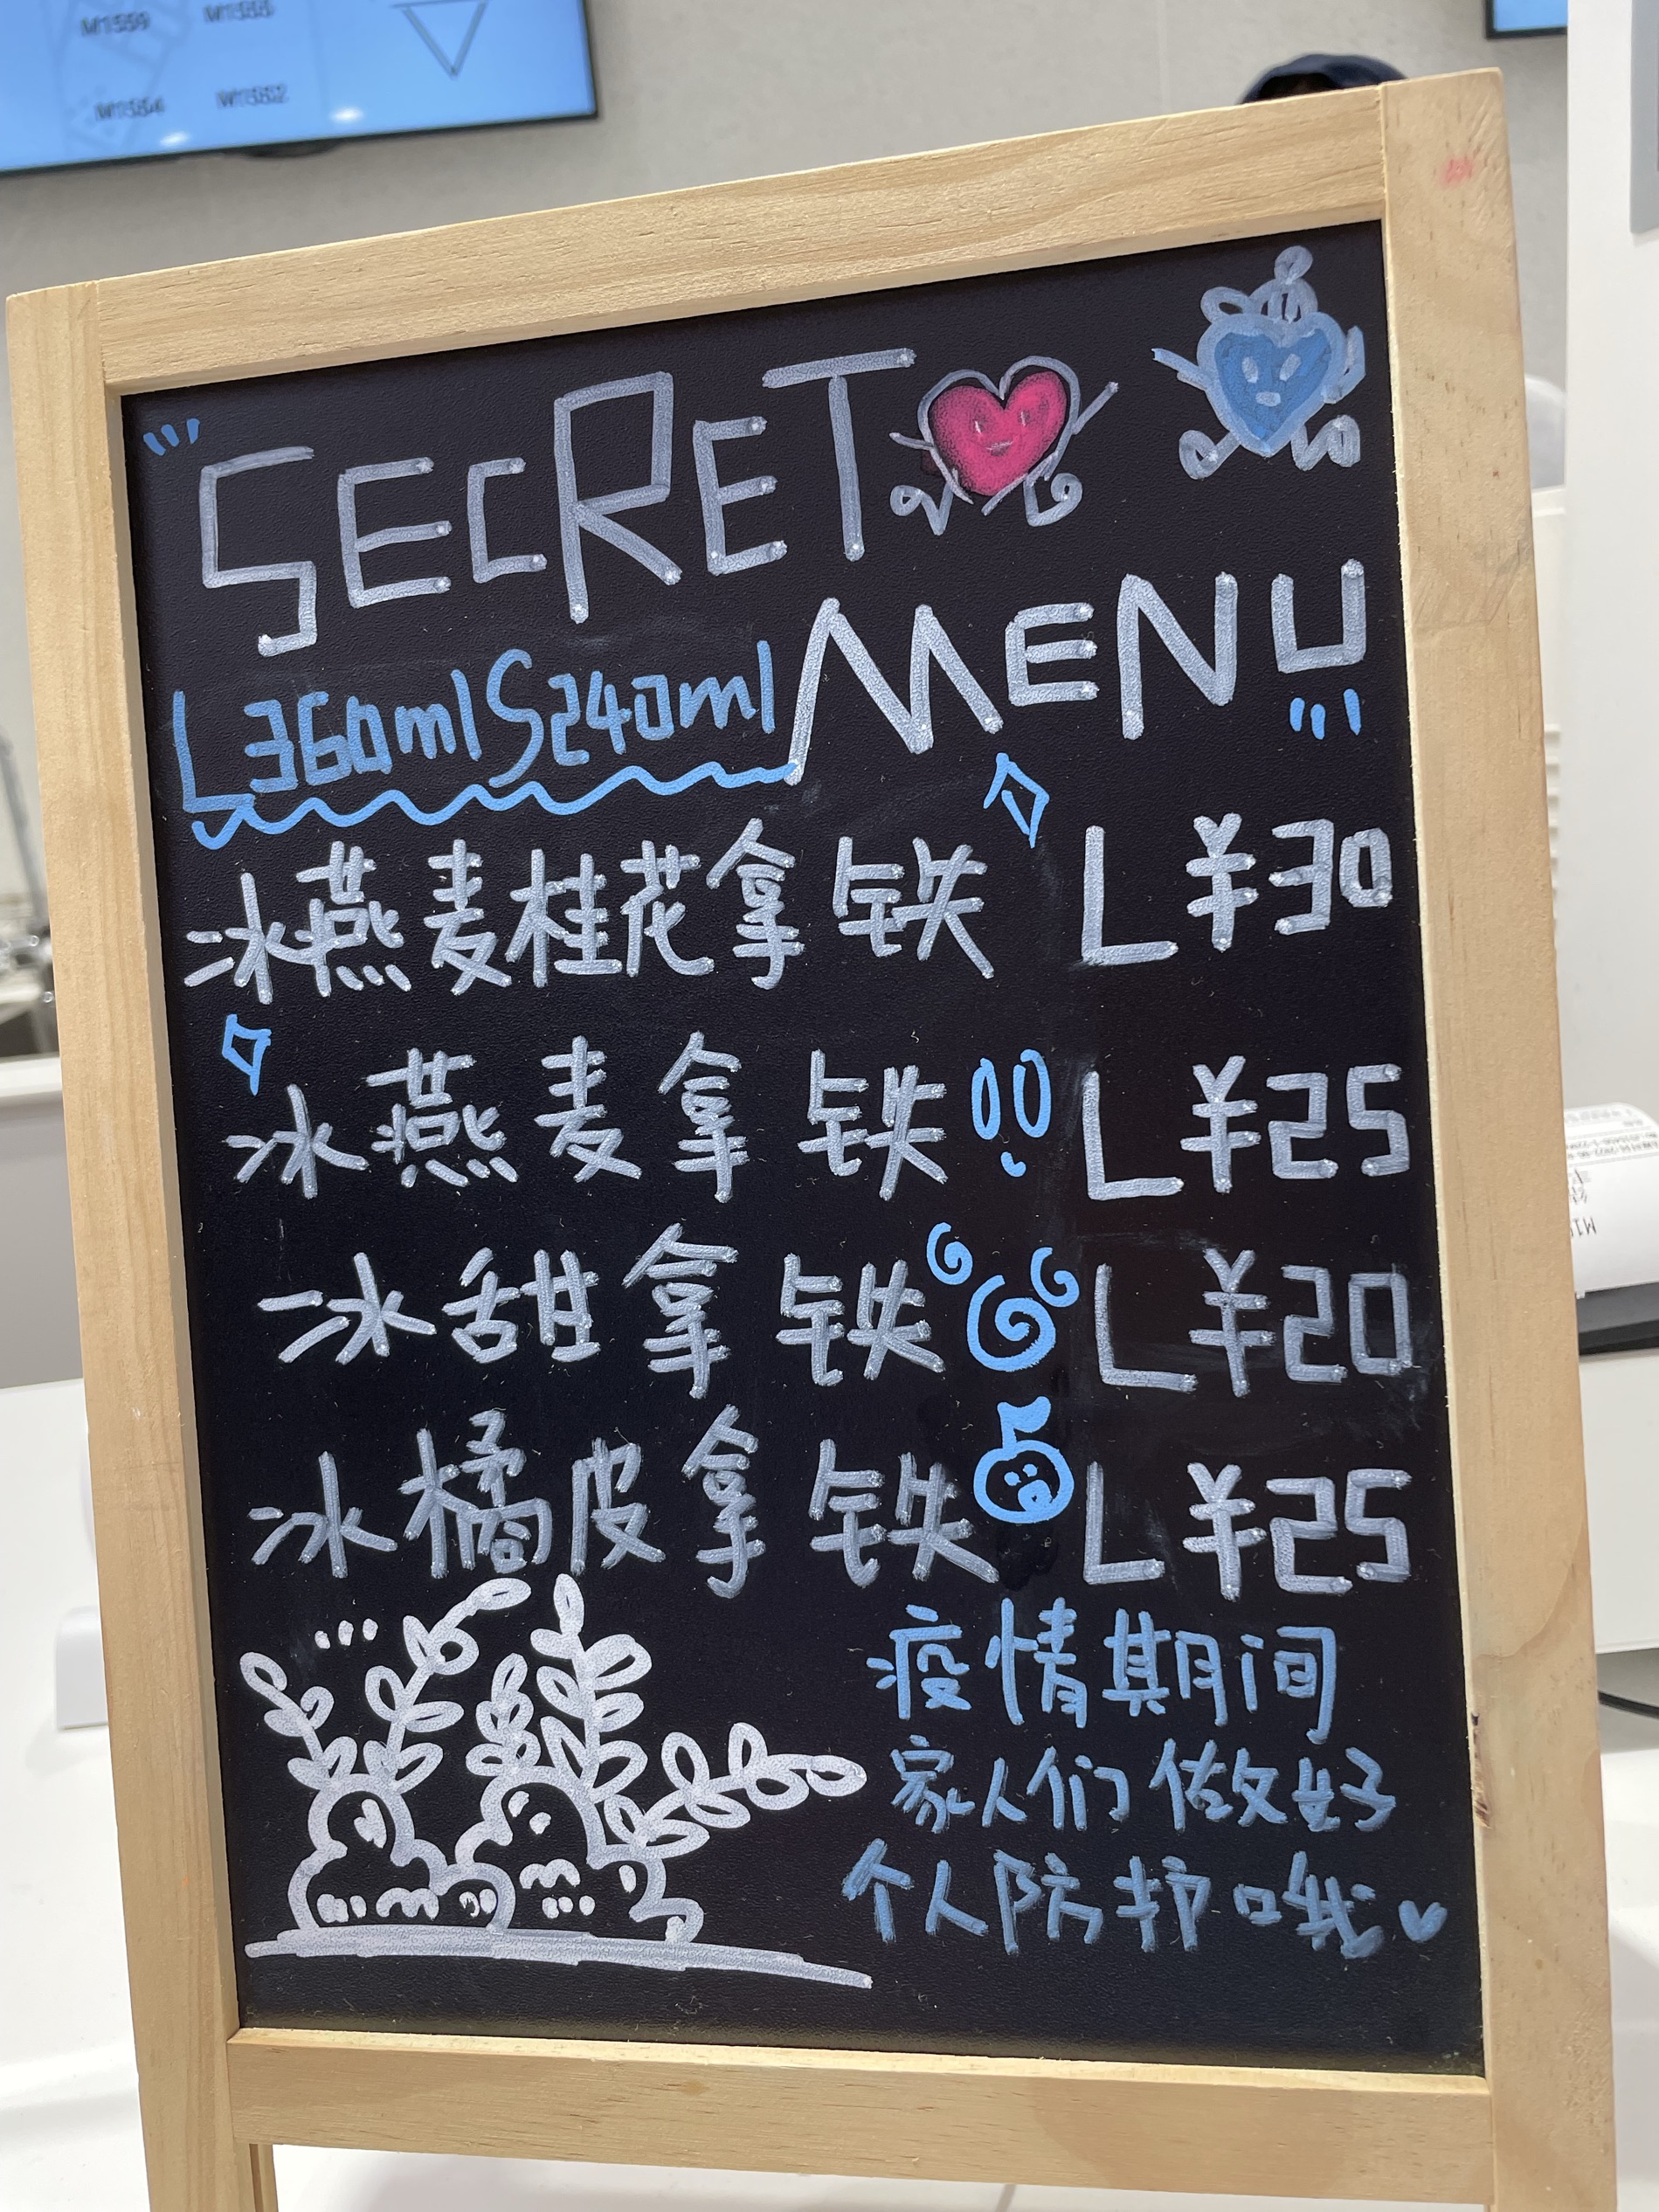 M1559 M1555
M1584 M1582
SECRET
MENU
L360ml S240ml
冰燕麦桂花拿铁 L ¥30
冰燕麦拿铁 L ¥25
冰甜拿铁 L ¥20
冰橘皮拿铁 L ¥25
疫情期间
家人们做好
个人防护哦